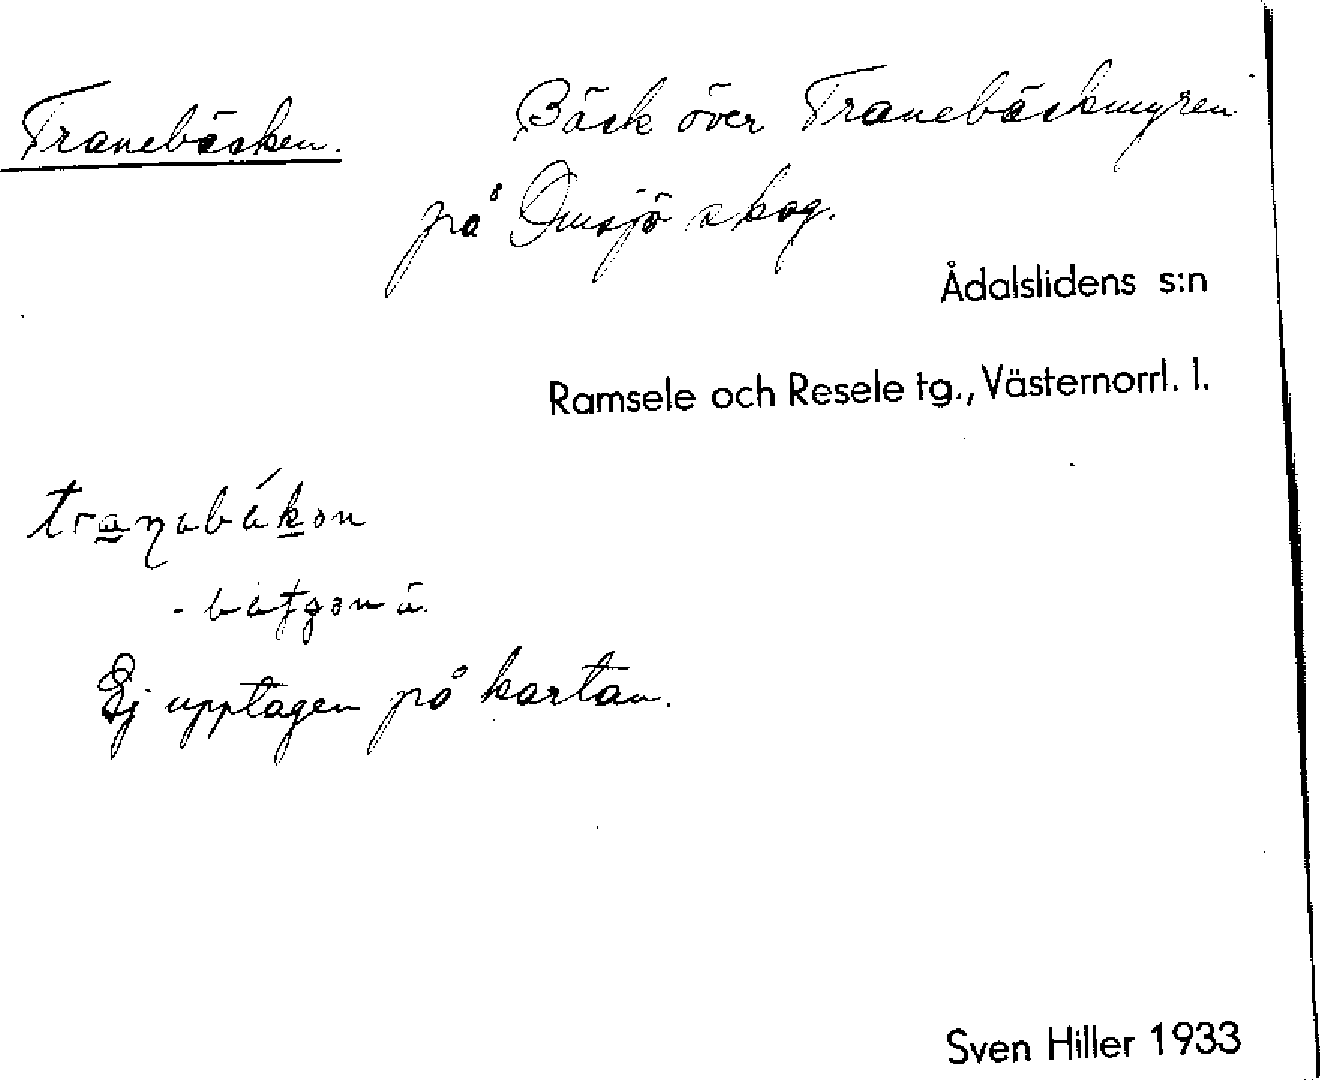 Tranebäcken. Bäck över Tranebäckmyren
på Omsjö skog.
Ådalslidens s:n
Ramsele och Resele tg., Västernorrl. l.
Ej upptagen på kartan.
Sven Hiller 1933